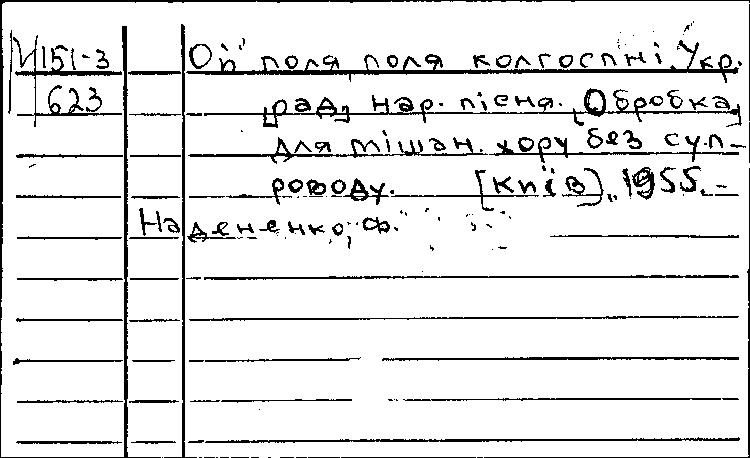 М151-3 Ой поля, поля колгоспні. Укр.
623 [рад] нар. пісня. [Обробка]
для мішан. хору без суп-
роводу. [Київ], 1955.-
Надененко, Ф.